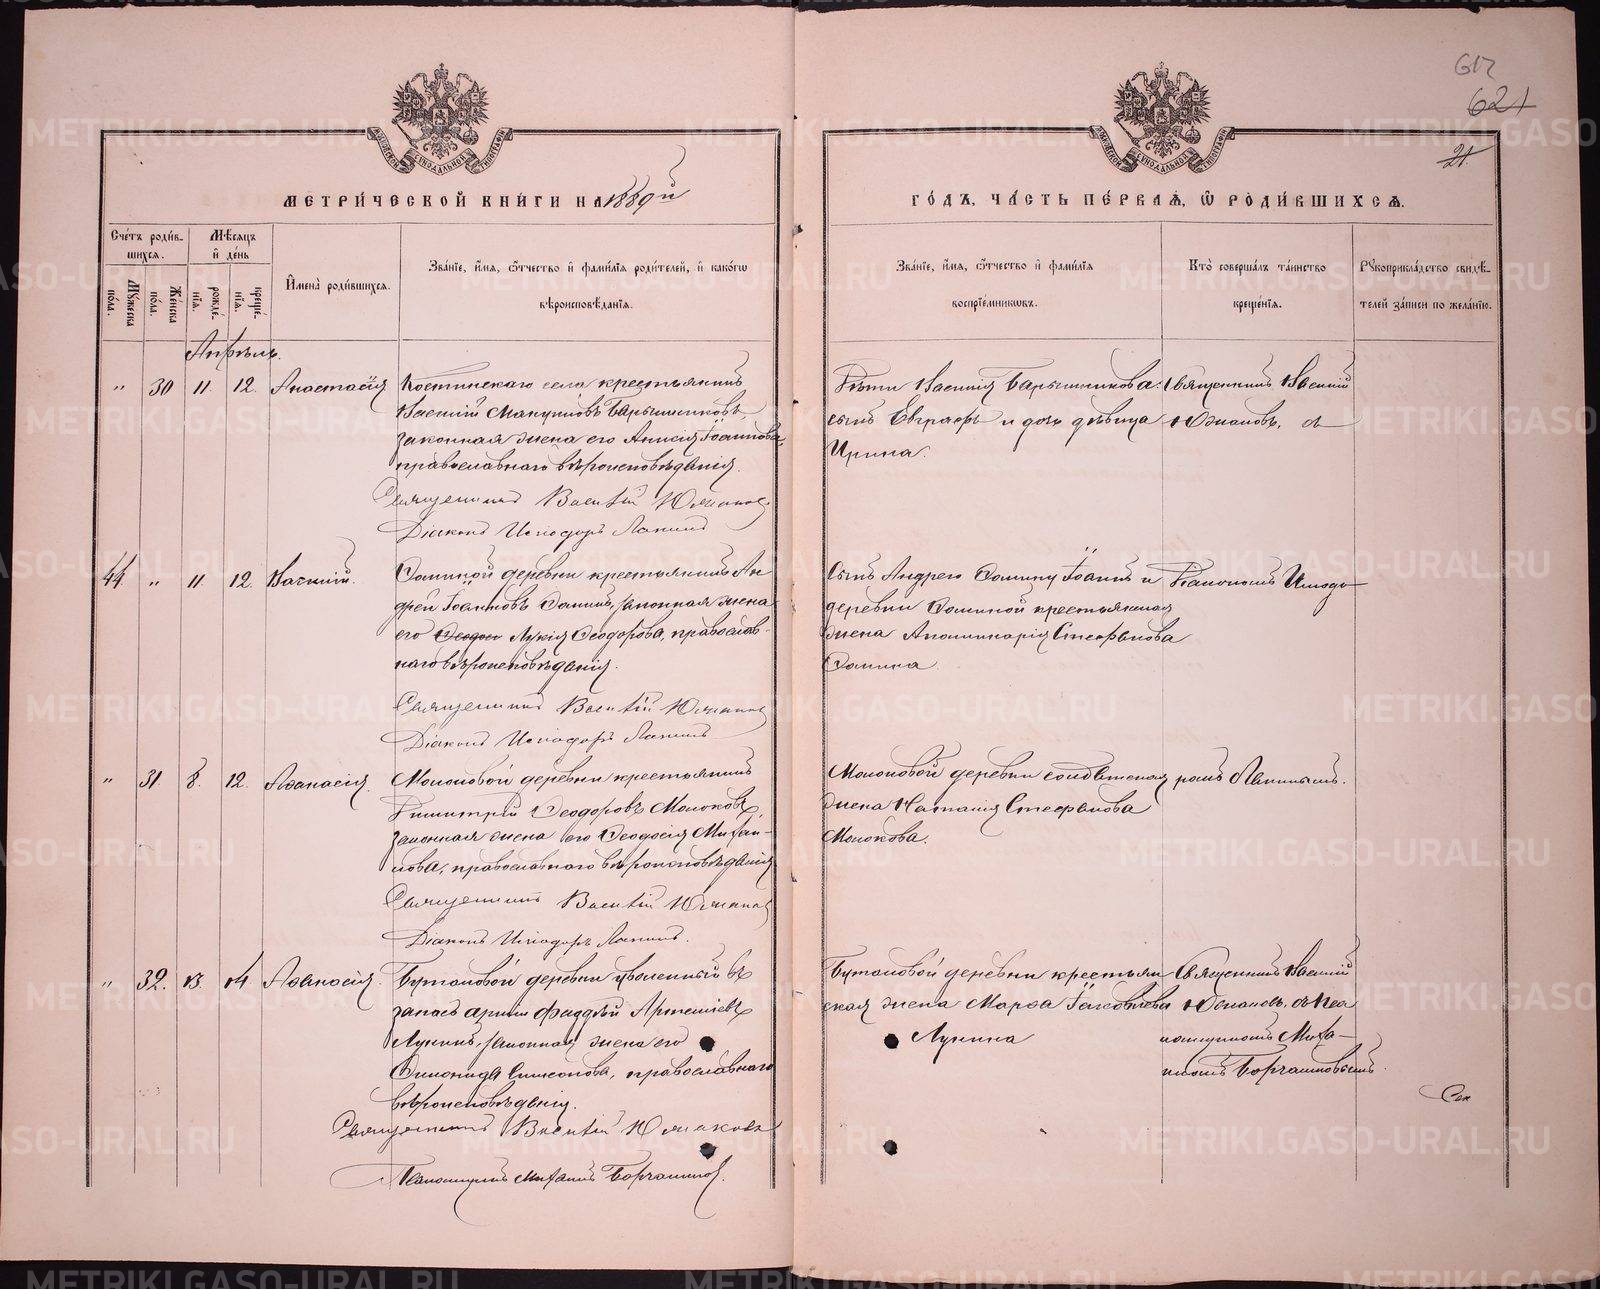 617
621
21.
МЕТРИ́ЧЕСКОЙ КНИ́ГИ НА 1889й
ГО́ДЪ, ЧА́СТЬ ПЕ́РВАЯ, Ѡ РОДИ́ВШИХСЯ.
Сче́тъ роди́в-
шихся.
Мѣсяцъ
и де́нь
Му́жеска
по́ла.
Же́нска
по́ла.
рожде́-
нїя.
креще́-
нїя.
И҆мена̀ роди́вшихся.
Зва́нїе, и҆́мя, ѻ҆́тчество и҆ фами́лїя роди́телей, и҆ како́гѡ
вѣроисповѣ́данїя.
Зва́нїе, и҆́мя, ѻ҆́тчество и҆ фами́лїя
воспрїе́мникѡвъ.
Кто̀ соверша́лъ та́инство
креще́нїя.
Рукоприкла́дство свидѣ́-
телей за́писи по жела́нїю.
Апрѣль.
" 30 11. 12. Анастасія
Костинскаго села крестьянинъ
Василій Барышниковъ,
законная жена его Анисія Іоаннова,
православнаго вѣроисповѣданія.
Священникъ Василій Южаковъ
Діаконъ Исидоръ Лапинъ
Дѣти Василія Барышникова:
сынъ Евграфъ и дочь дѣвица
Ирина.
Священникъ Василій
Южаковъ, съ
44. " 11 12. Василій.
Сониной деревни крестьянинъ Ан-
дрей Іоанновъ Сонинъ, законная жена
его Ѳеодос Лукія Ѳеодорова, православ-
наго вѣроисповѣданія.
Священникъ Василій Южаковъ
Діаконъ Исидоръ Лапинъ
Сынъ Андрею Сонину Іоаннъ и
деревни Сониной крестьянская
жена Аполлинарія Стефанова
Сонина
Діакономъ Исидо-
" 31. 8. 12. Аѳанасія.
Молоковой деревни крестьянинъ
Димитрій Ѳеодоровъ Молоковъ,
законная жена его Ѳеодосія Михаи-
лова, православнаго вѣроисповѣданія
Священникъ Василій Южаковъ
Діаконъ Исидоръ Лапинъ.
Молоковой деревни солдатская
жена Наталія Стефанова
Молокова.
ромъ Лапинымъ.
" 32. 13. 14. Аѳанасія.
Бутаковой деревни уволенный въ
запасъ арміи Фаддѣй Артемьевъ
Лукинъ, законная жена его
Симеонова, православнаго
вѣроисповѣданія.
Священникъ Василій Южаковъ
Псаломщикъ Михаилъ
Бутаковой деревни крестьян-
ская жена Марѳа Іаковлева
Лукина
Священникъ Василій
Южаковъ, съ Пса-
ломщикомъ Миха-
иломъ